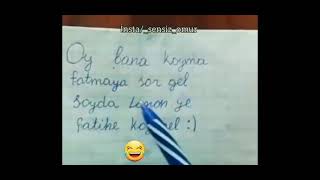 Insta/_sensiz_omur
Oy bana koyma
fatmaya sor gel
Soyda Limon ye
fatihe ko el :)